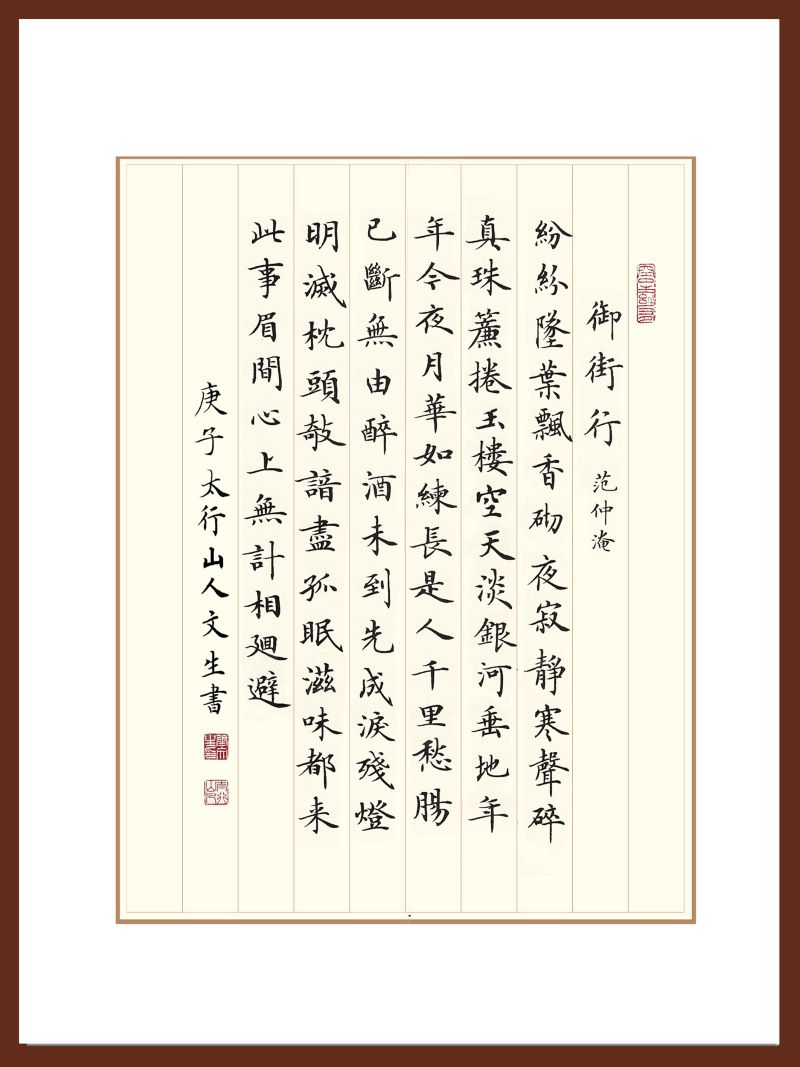 御街行 范仲淹
紛紛墜葉飄香砌夜寂靜寒聲碎
真珠簾捲玉樓空天淡銀河垂地年
年今夜月華如練長是人千里愁腸
已斷無由醉酒未到先成淚殘燈
明滅枕頭敧諳盡孤眠滋味都来
此事眉間心上無計相迴避
庚子太行山人文生書